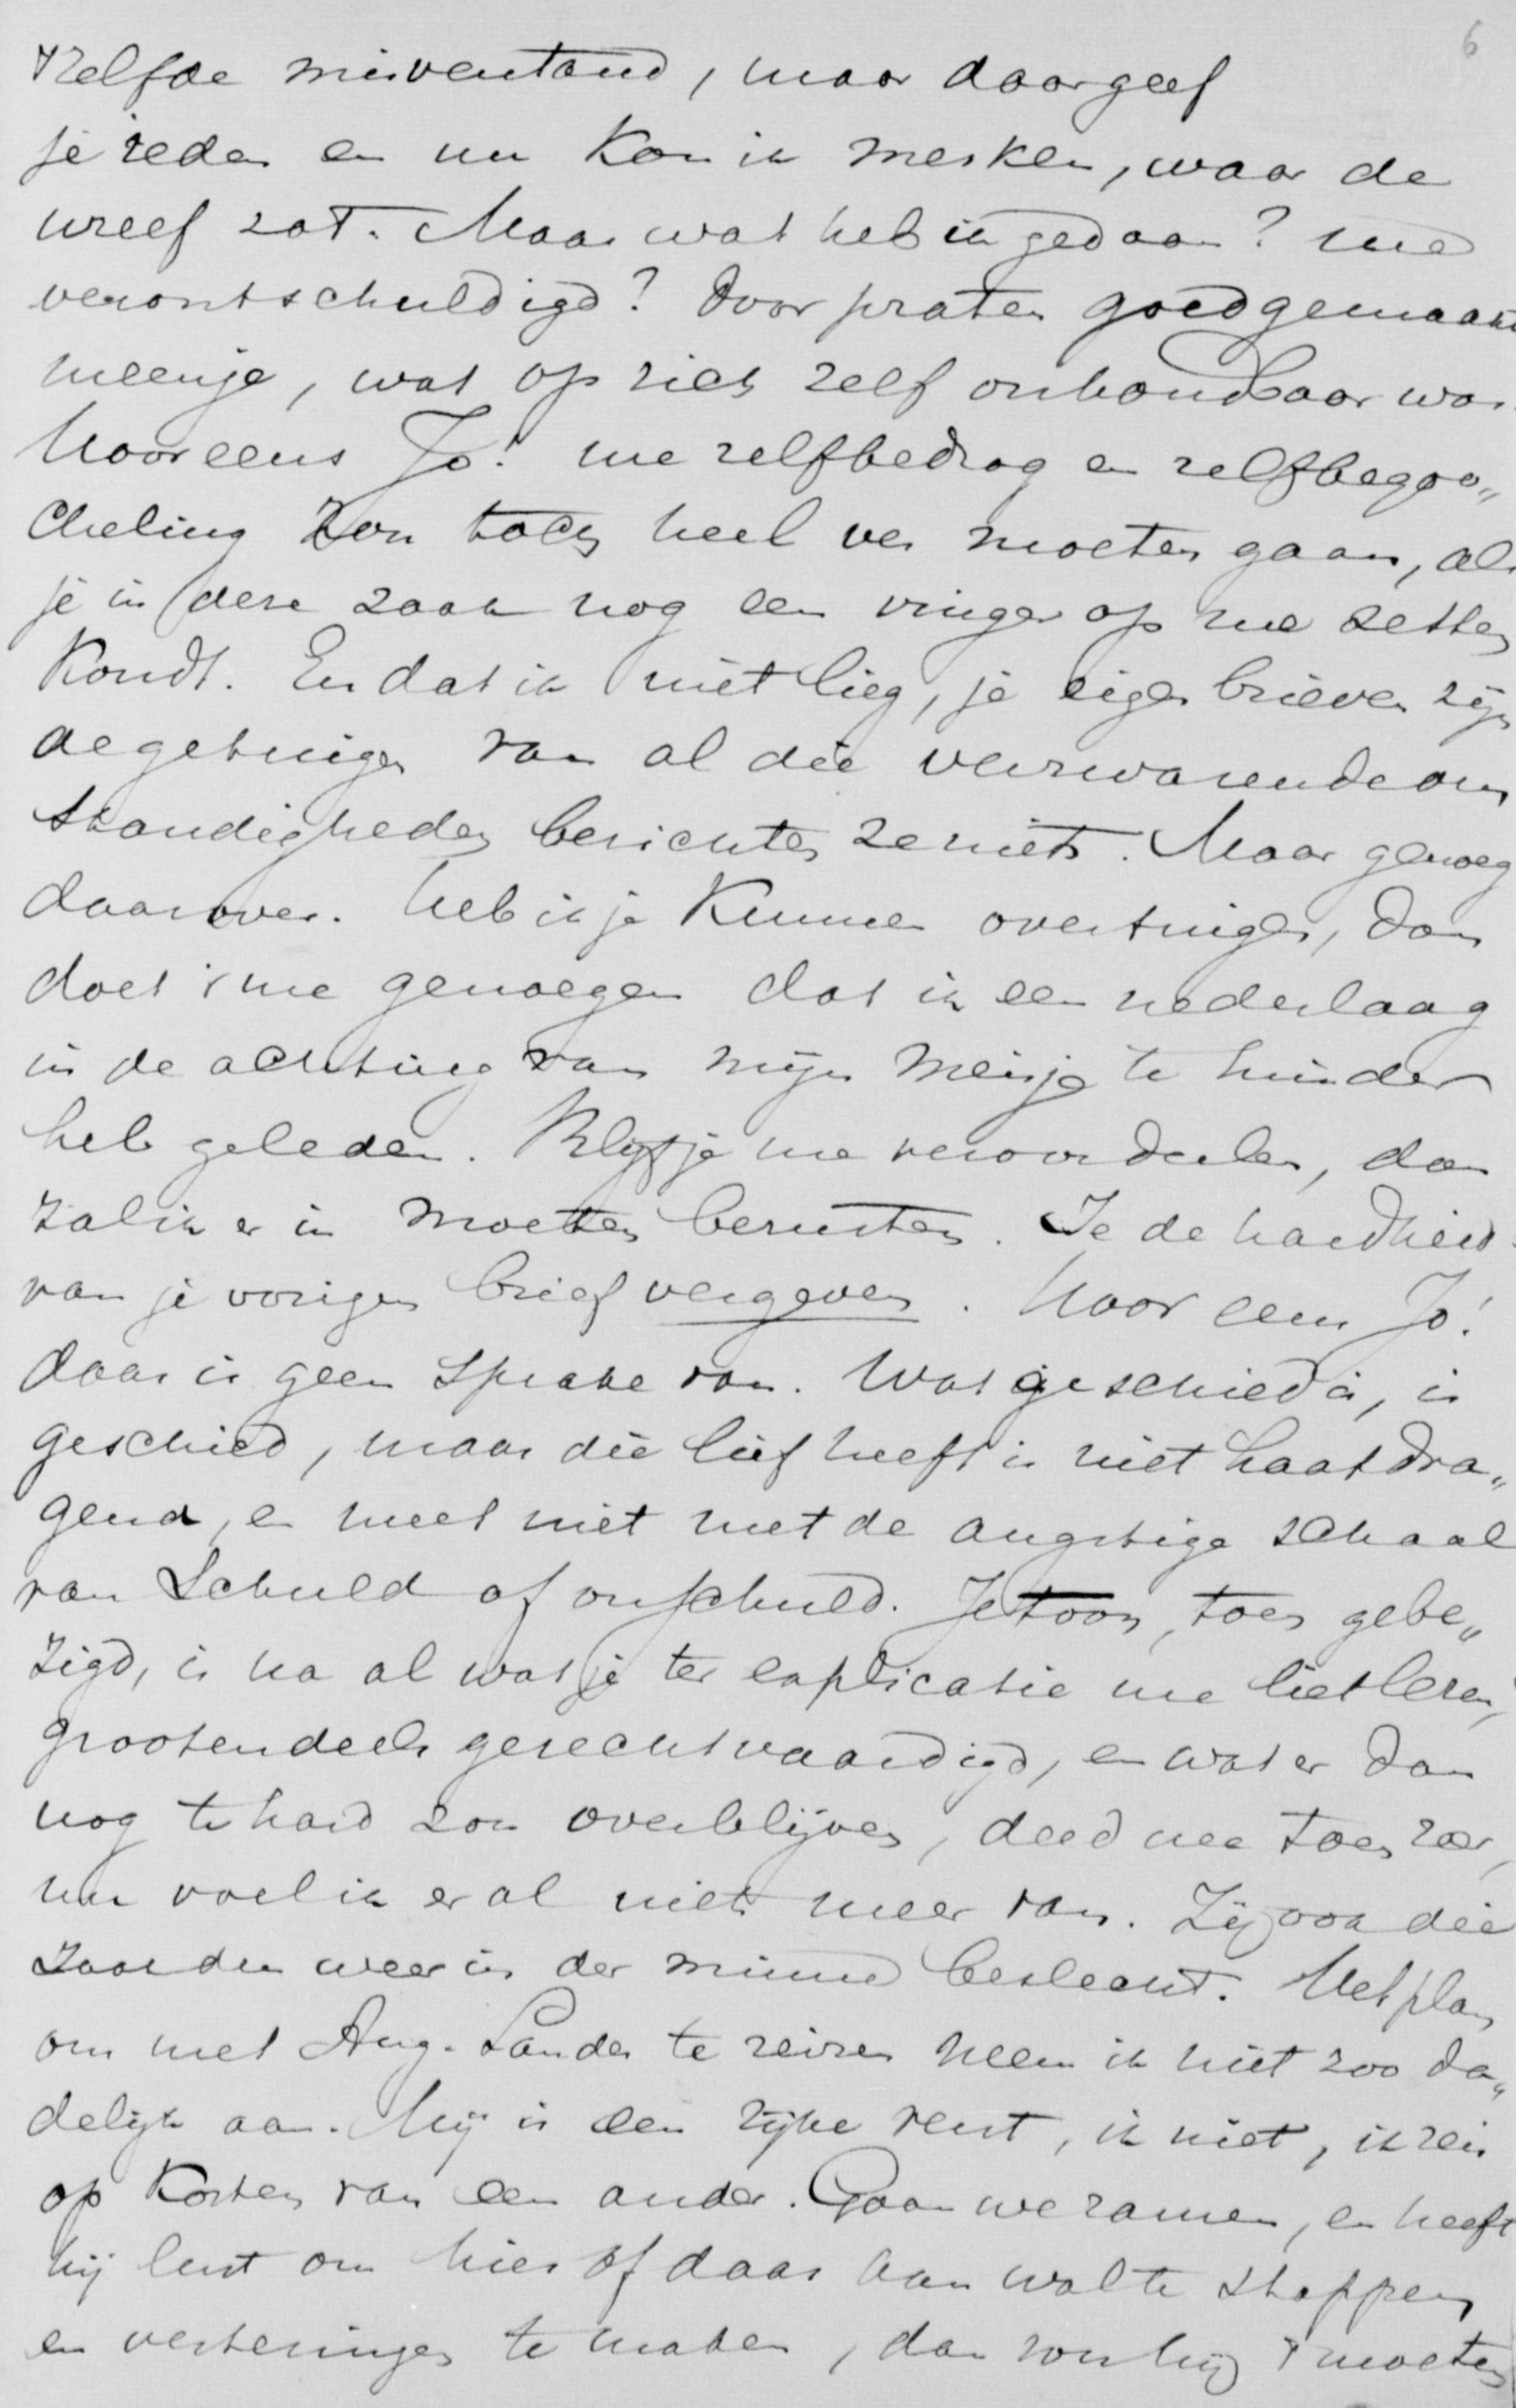 6
'tzelfde misverstand, maar daar geef
je reden en nu kon ik merken, waar de
wreef zat. Maar wat heb ik gedaan? me
verontschuldigd? Door praten goedgemaakt
meen je, wat op zich zelf onhoudbaar was.
Hoor eens Jo! me zelfbedrog en zelfbegoo„
cheling zou toch heel ver moeten gaan, als
je in deze zaak nog een vinger op me zetten
kondt. En dat ik niet lieg, je eigen brieven zijn
de getuigen van al die verzwarende om
standigheden berichten ze niets. Maar genoeg
daarover. Heb ik je kunnen overtuigen, dan
doet 't me genoegen dat ik een nederlaag
in de achting van mijn meisje te minder
heb geleden. Blijf je me veroordeelen, dan
zal ik er in moeten berusten. Je de hardheid
van je vorigen brief vergeven. Hoor eens Jo!
daar is geen sprake van. Wat geschied is, is
geschied, maar die lief heeft is niet haatdra„
gend, en meet niet met de angstige schaal
van schuld of onschuld. Je toon, toen gebe„
zigd, is na al wat je ter explicatie me liet lezen,
grootendeels gerechtvaardigd, en wat er dan
nog te hard zou overblijven, deed me toen zeer,
nu voel ik er al niets meer van. Zij ook die
zaak dan weer in der minne beslecht. Het plan
om met Aug. Sander te reizen neem ik niet zoo da„
delijk aan. Hij is een rijke vent, ik niet, ik reis
op kosten van een ander. Gaan we zamen, en heeft
hij lust om hier of daar aan wal te stappen
en verteringen te maken, dan zou hij 't moeten